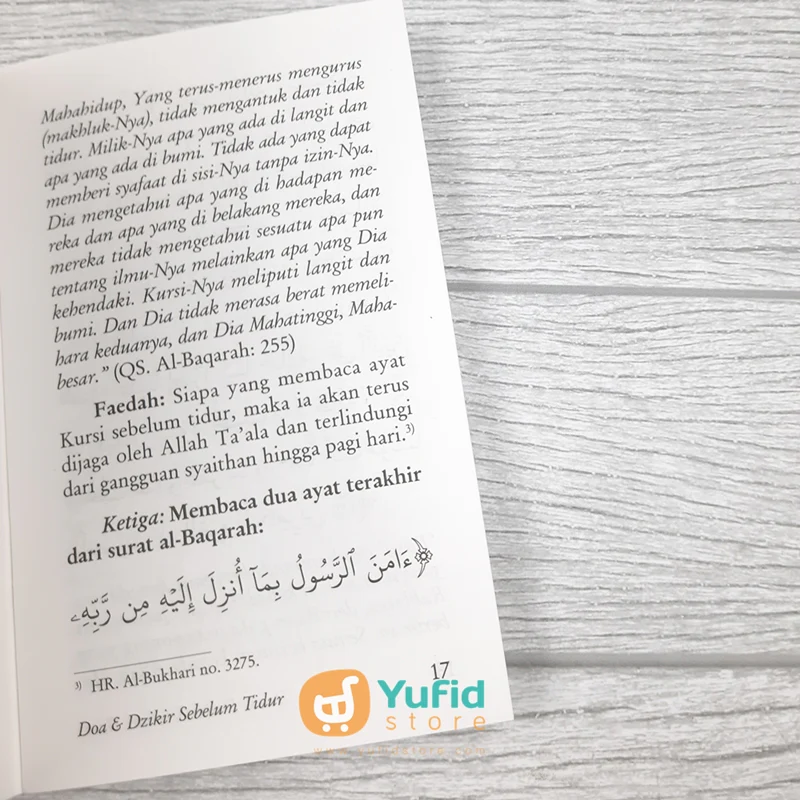 Mahahidup, Yang terus-menerus mengurus
(makhluk-Nya), tidak mengantuk dan tidak
tidur. Milik-Nya apa yang ada di langit dan
apa yang ada di bumi. Tidak ada yang dapat
memberi syafaat di sisi-Nya tanpa izin-Nya.
Dia mengetahui apa yang di hadapan me-
reka dan apa yang di belakang mereka, dan
mereka tidak mengetahui sesuatu apa pun
tentang ilmu-Nya melainkan apa yang Dia
kehendaki. Kursi-Nya meliputi langit dan
bumi. Dan Dia tidak merasa berat memeli-
hara keduanya, dan Dia Mahatinggi, Maha-
besar.” (QS. Al-Baqarah: 255)
Faedah: Siapa yang membaca ayat
Kursi sebelum tidur, maka ia akan terus
dijaga oleh Allah Ta’ala dan terlindungi
dari gangguan syaithan hingga pagi hari.³⁾
Ketiga: Membaca dua ayat terakhir
dari surat al-Baqarah:
﴿ءَامَنَ ٱلرَّسُولُ بِمَآ أُنزِلَ إِلَيْهِ مِن رَّبِّهِۦ
³⁾ HR. Al-Bukhari no. 3275.
Doa & Dzikir Sebelum Tidur
17
Yufid
store
www.yufidstore.com